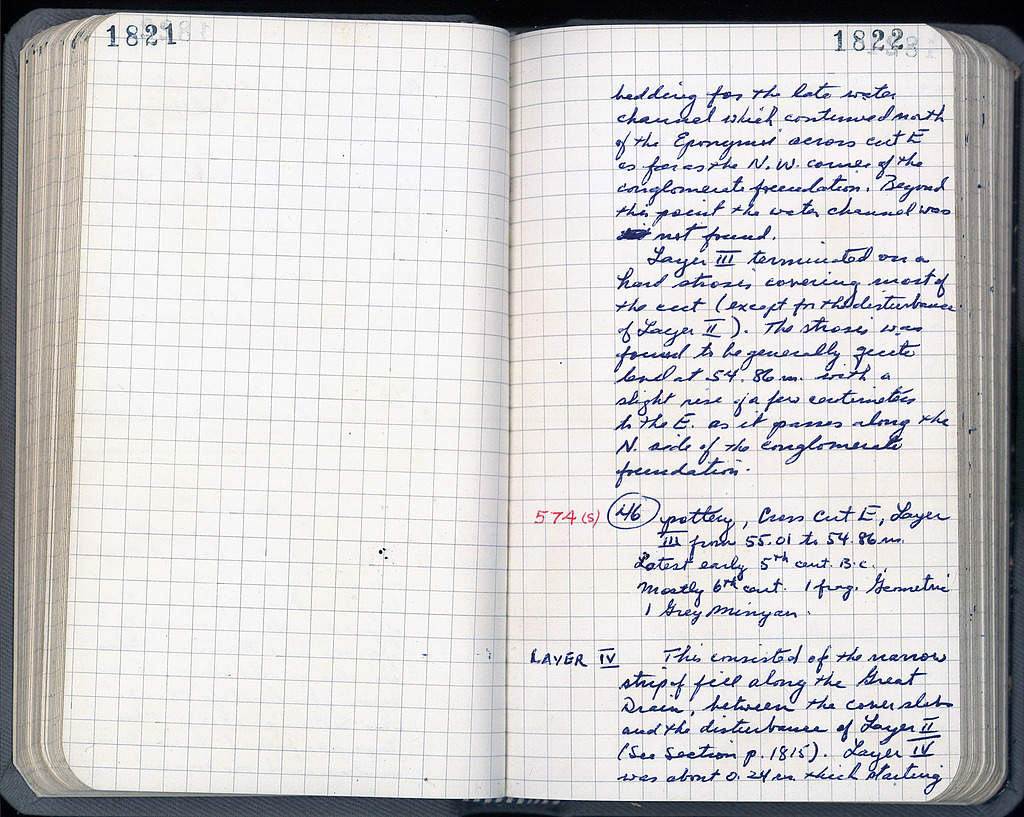 1821
1822
bedding for the late water
channel which continued north
of the Eponymoi across cut E
as far as the N.W. corner of the
conglomerate foundation. Beyond
this point the water channel was
not found.
Layer III terminated on a
hard strosis covering most of
the cut (except for the disturbance
of Layer II). The strosis was
found to be generally quite
level at 54.86 m. with a
slight rise of a few centimeters
to the E. as it passes along the
N. side of the conglomerate
foundation.
574 (S) 46 pottery, Cross Cut E, Layer
III from 55.01 to 54.86 m.
Latest early 5th cent. B.C.
Mostly 6th cent. 1 frag. Geometric
1 Grey Minyan.
LAYER IV This consisted of the narrow
strip of fill along the Great
Drain, between the cover slabs
and the disturbance of Layer II
(See Section p. 1815). Layer IV
was about 0.24 m. thick starting